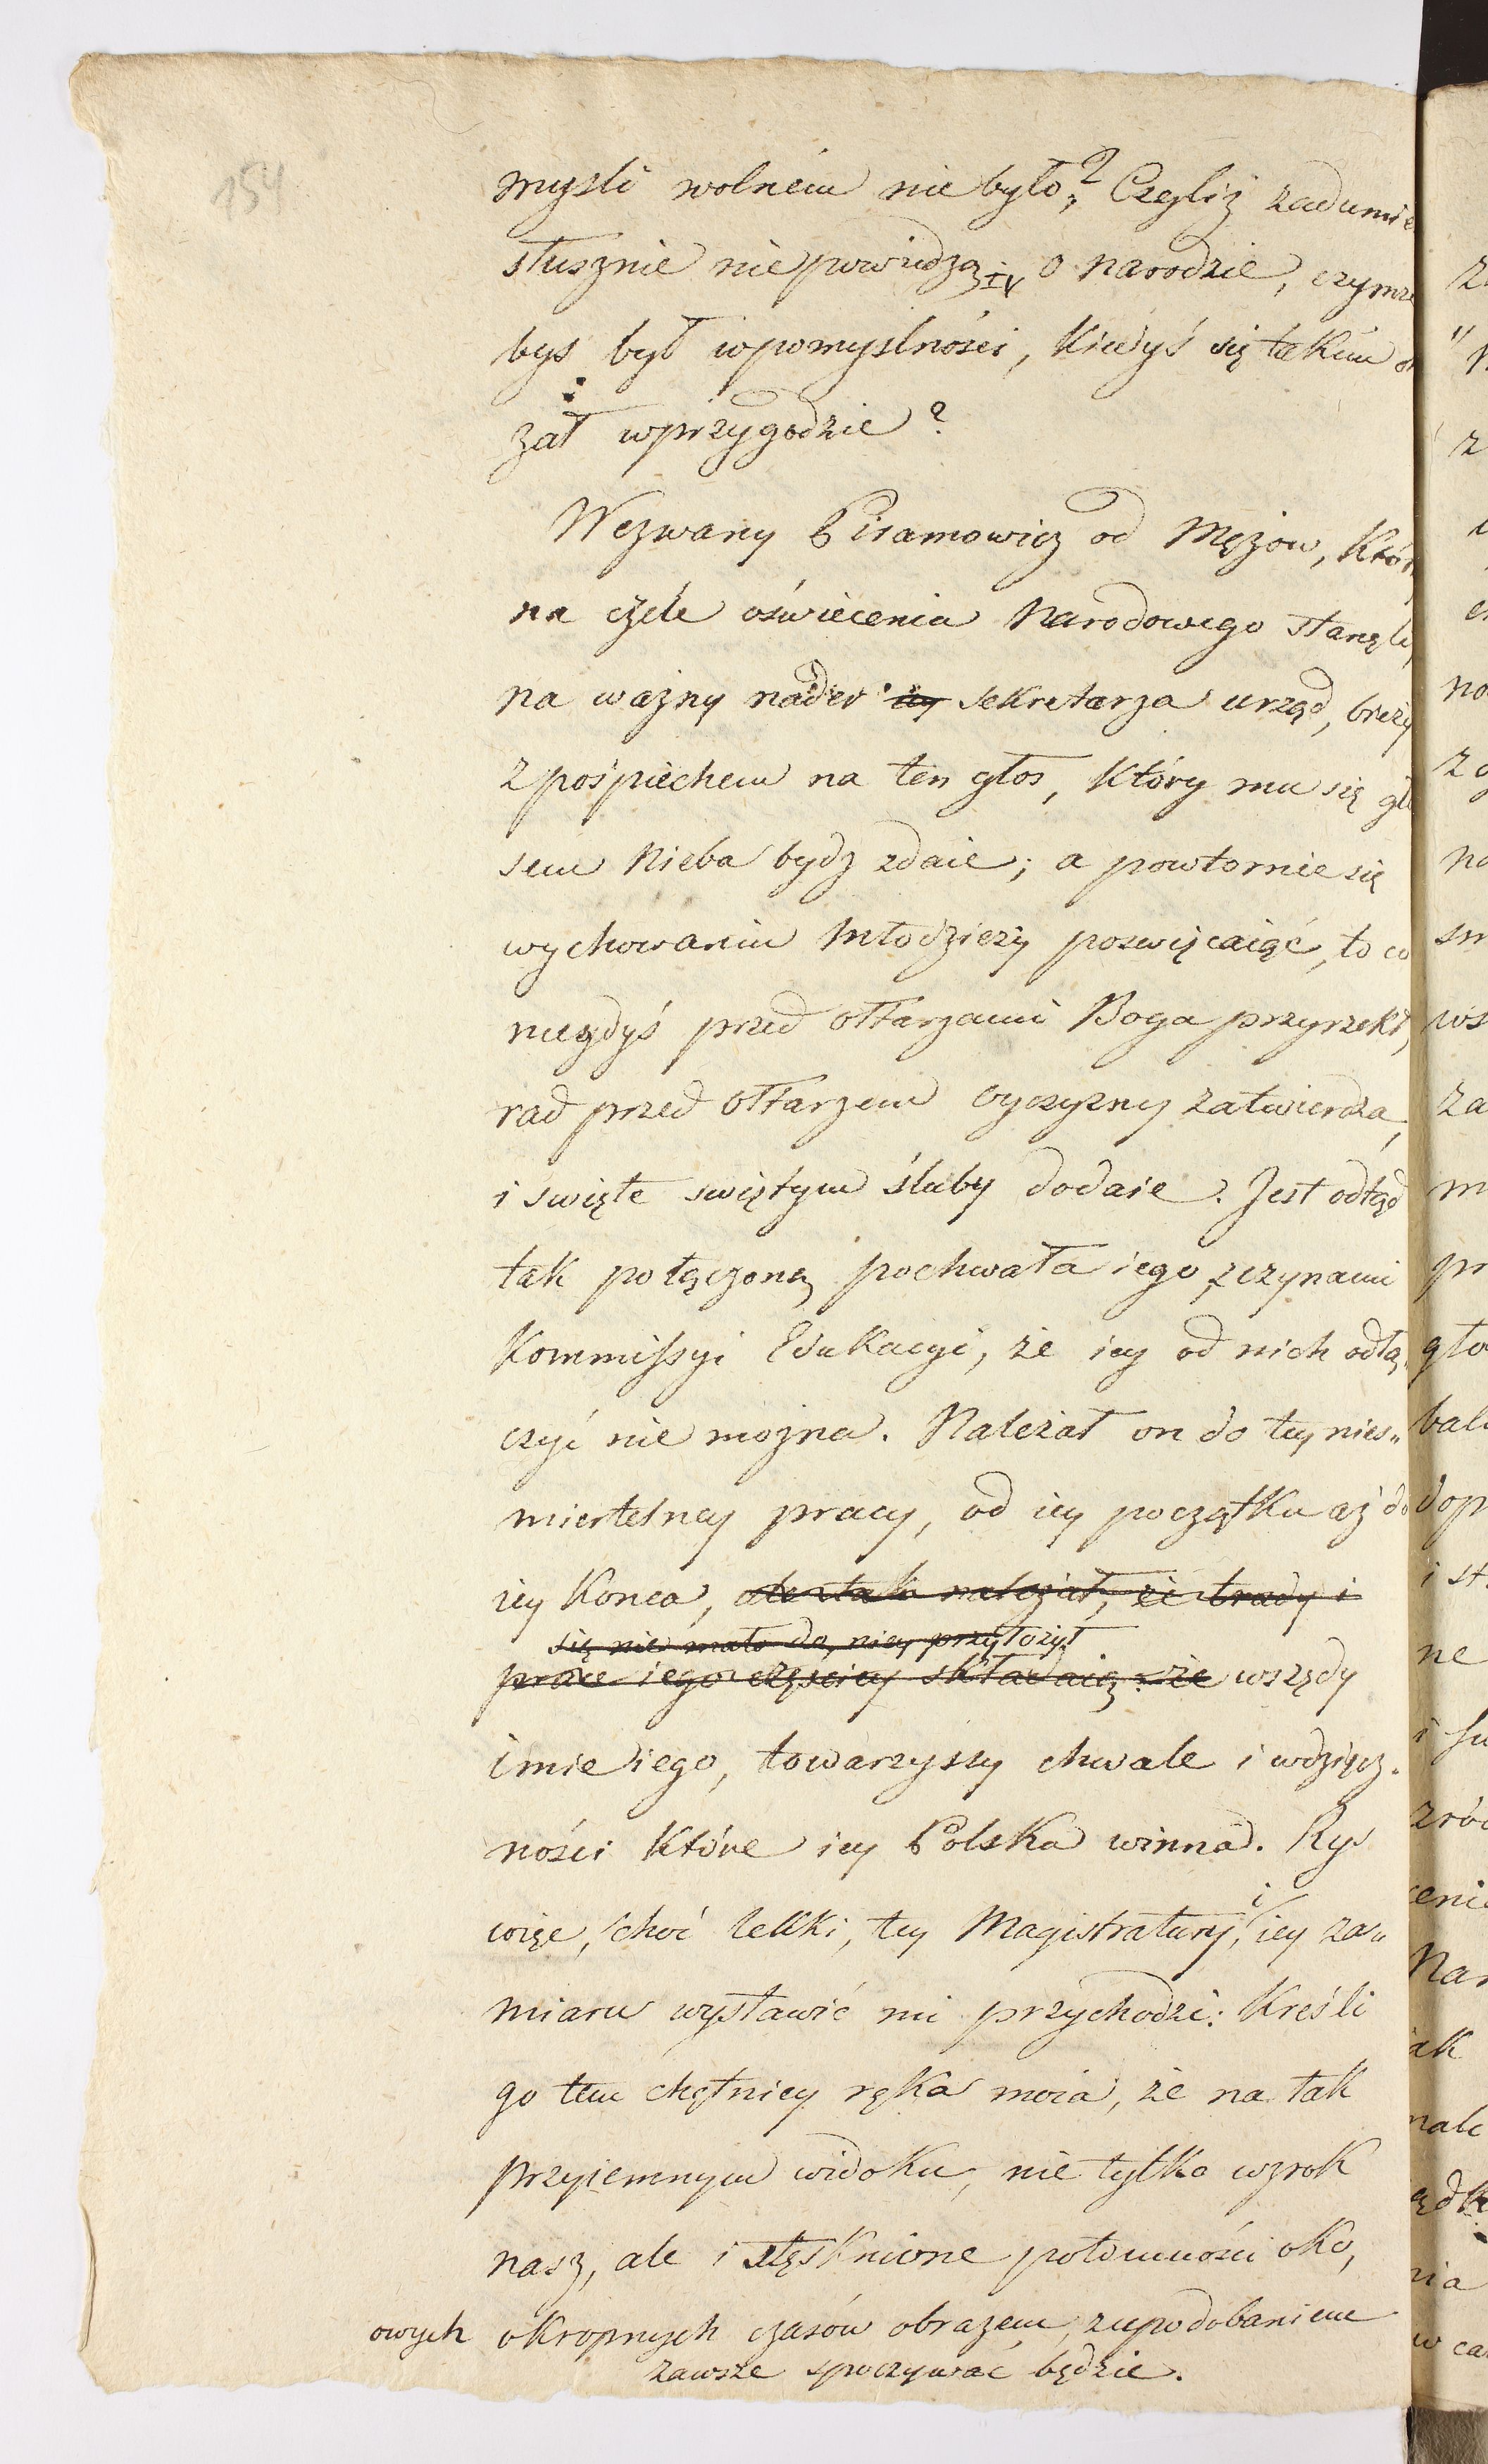 154
mysli wolném nie było? Czyliż zadumie
słusznie nie powiedzą: o narodzie, czymże
byś był w pomyslności, kiedyś się takim o
zał w przygodzie?
Wezwany Piramowicz od Mężow, któr
na czele oświecenia Narodowego stanęli,
na ważny nader iey sekretarza urząd, bieży
z pośpiechem na ten głos, który mu się gło
sem Nieba bydz zdaie; a powtornie się
wychowaniu Młodzieży poswięcaiąc, to co
niegdyś przed ołtarzami Boga przyrzekł,
rad przed ołtarzem oyczyzny zatwierdza,
i święte swiętym śluby dodaie. Jest odtąd
tak połączoną pochwała iego z czynami
Kommissyi Edukacyi, że iey od nich odłą„
czyć nie można. Należał on do tey nieś„
miertelney pracy, od iey początku aż do
iey końca, ale tak należał, że trudy i
się nie mało do niey przyłożył
prace iego częściey składaią: że wszędy
imie iego, towarzyszy chwale i wdzięcz„
ności które iey Polska winna. Rys
więc, choć lekki, tey Magistratury, i iey za„
miaru wystawić mi przychodzi: Kreśli
go tem chętniey ręka moia, że na tak
przyiemnym widoku, nie tylko wzrok
nasz, ale i stęsknione potomności oko,
owych okropnych czasów obrazem, z upodobaniem
zawsze spoczywać będzie.